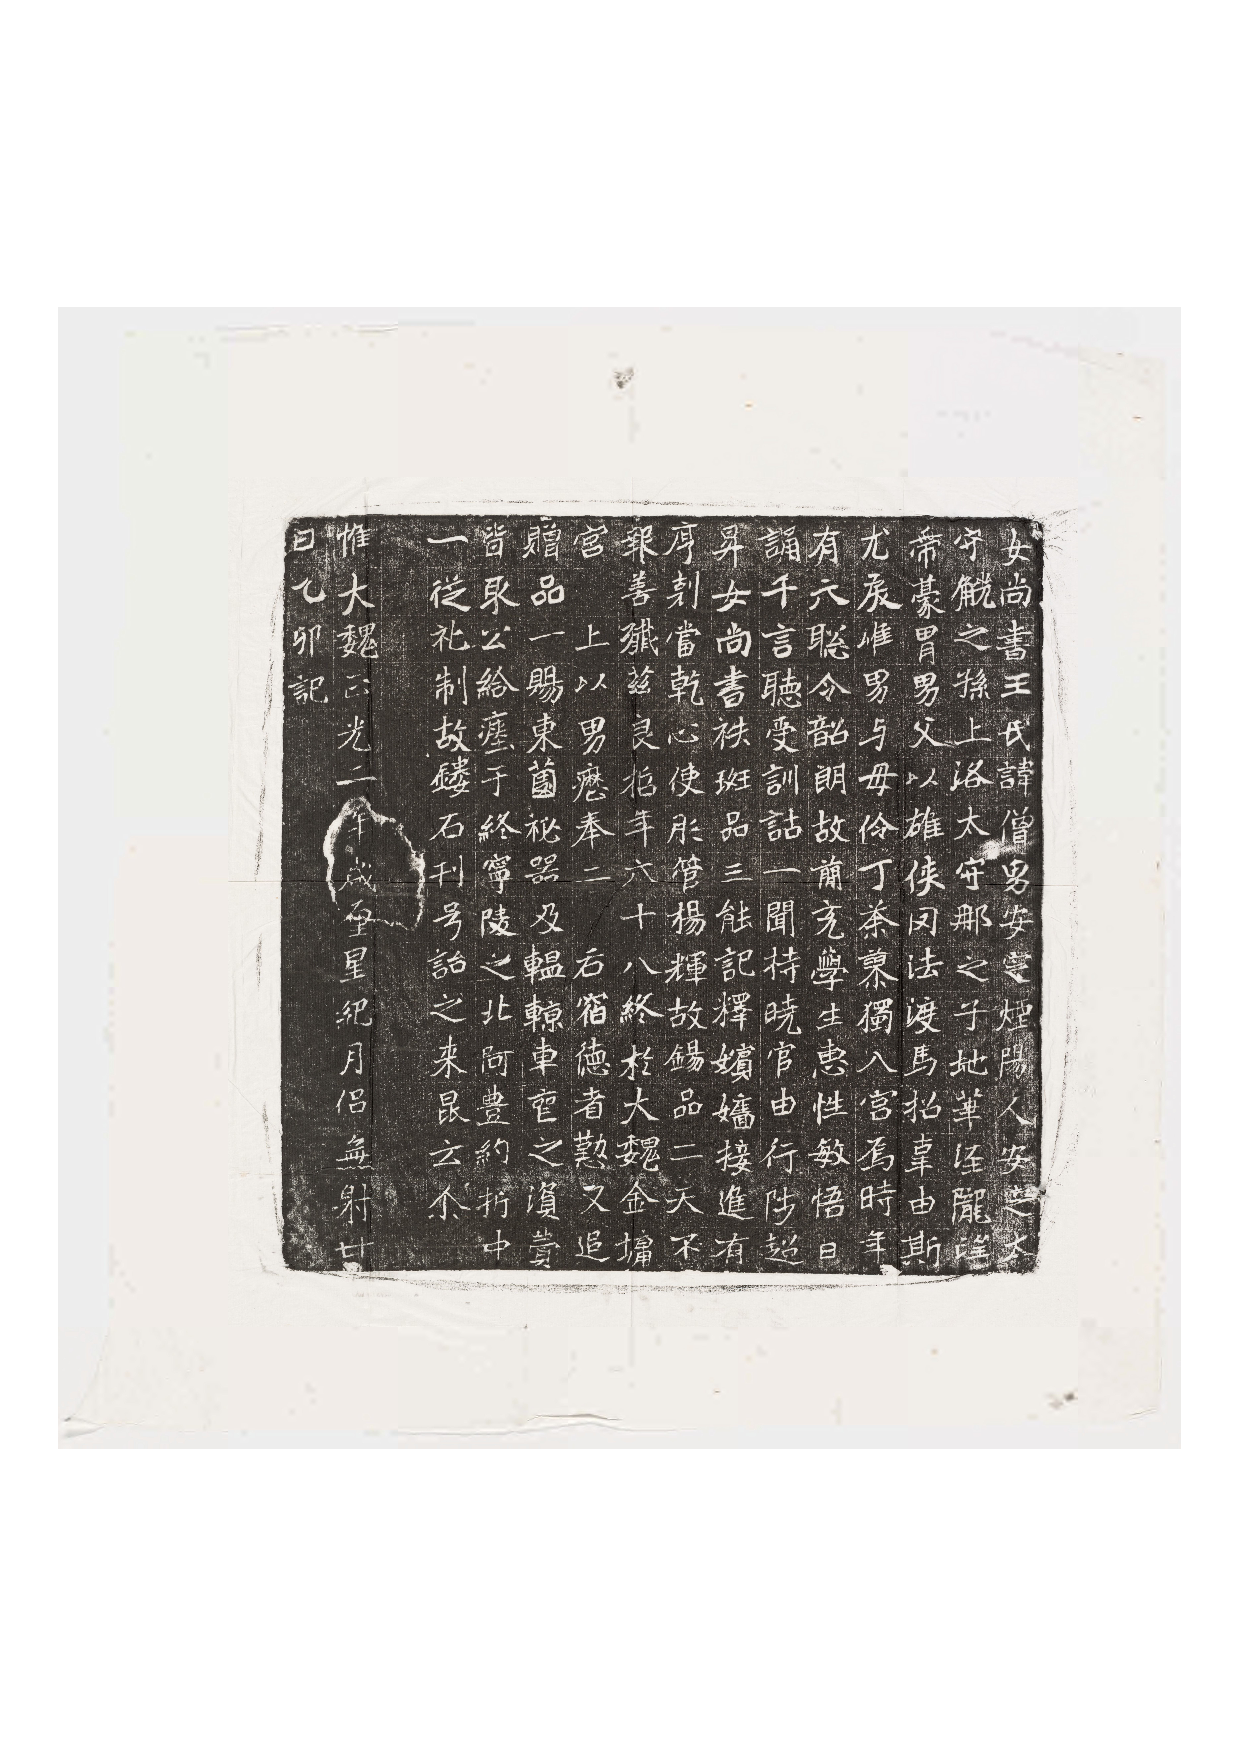 女尚書王氏諱僧男安定煙陽人安定太
守觥之孫上洛太守那之子地華涇隴望
帝蒙胄男父以雄俠罔法渡馬招辜由斯
尤戾唯男与母伶丁荼蓼獨入宮焉時年
有六聡令韶朗故蕳充學生惠性敏悟日
誦千言聴受訓詁一聞持曉官由行陟超
昇女尚書袟班品三能記釋嬪嬙接進有
序剋當乾心使彤管楊輝故錫品二天不
報善殲兹良㧖年六十八終於大魏金墉
宮　上以男歷奉二　后宿德者懃又追
贈品一賜東薗祕器及轀輬車葬之濱賣
皆取公給瘞于終寧陵之北阿豊約折中
一從礼制故鏤石刊号詒之来昆云尒
惟大魏正光二年歲在星紀月侣無射廿
日乙卯記